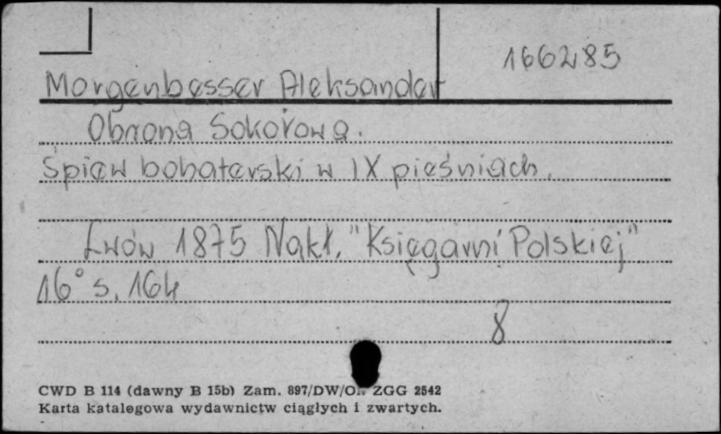 166285
Morgenbesser Aleksander
Obrona Sokołowa.
Śpiew bohaterski w IX pieśniach.
Lwów 1875 Nakł. "Księgarni Polskiej"
16° s. 164
8
CWD B 114 (dawny B 15b) Zam. 897/DW/O. ZGG 2542
Karta katalogowa wydawnictw ciągłych i zwartych.